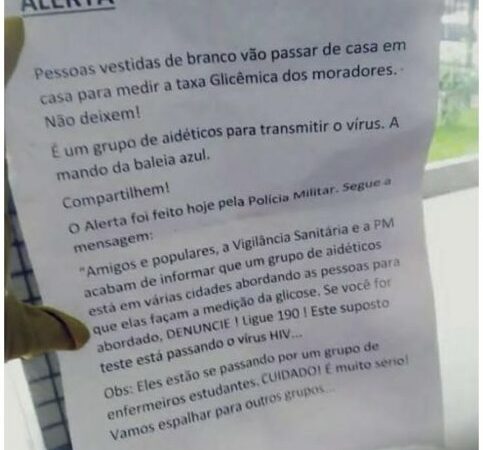 ALERTA
Pessoas vestidas de branco vão passar de casa em
casa para medir a taxa Glicêmica dos moradores.
Não deixem!
É um grupo de aidéticos para transmitir o vírus. A
mando da baleia azul.
Compartilhem!
O Alerta foi feito hoje pela Polícia Militar. Segue a
mensagem:
"Amigos e populares, a Vigilância Sanitária e a PM
acabam de informar que um grupo de aidéticos
está em várias cidades abordando as pessoas para
que elas façam a medição da glicose. Se você for
abordado, DENUNCIE ! Ligue 190 ! Este suposto
teste está passando o vírus HIV...
Obs: Eles estão se passando por um grupo de
enfermeiros estudantes. CUIDADO! É muito sério!
Vamos espalhar para outros grupos...